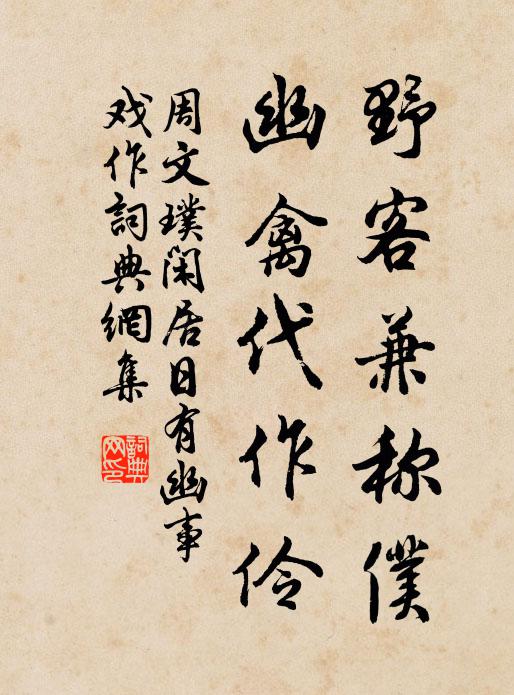 野客兼称僕
幽禽代作伶
周文璞闲居日有幽事
戏作詞典網集
詞典
网印